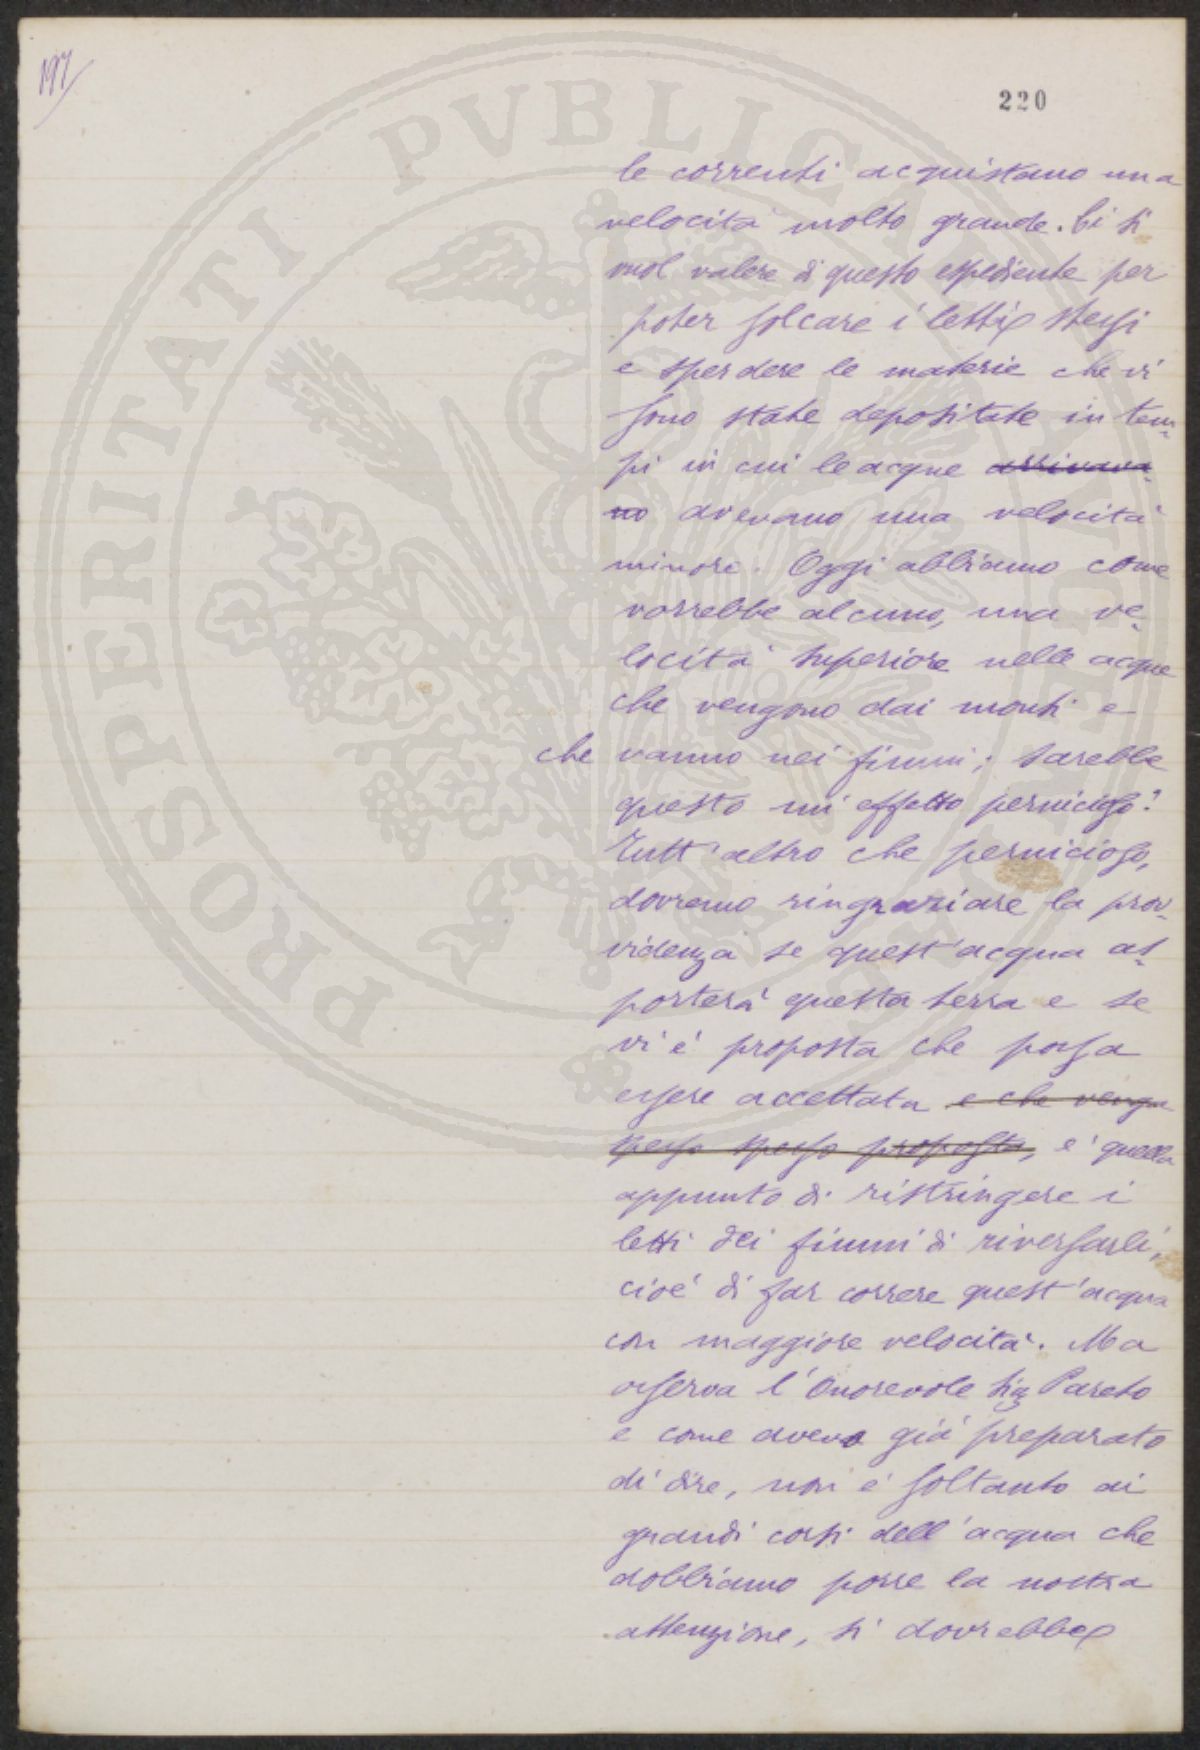 197
220
le correnti acquistano una
velocità molto grande. Ci si
vuol valere di questo espediente per
poter solcare i letti stessi
e sperdere le materie che vi
sono state depositate in tem-
pi in cui le acque arrivava-
no avevano una velocità
minore. Oggi abbiamo come
vorrebbe alcuno, una ve-
locità superiore nelle acque
che vengono dai monti e
che vanno nei fiumi; sarebbe
questo un effetto pernicioso?
Tutt'altro che pernicioso,
dovremo ringraziare la prov-
videnza se quest'acqua as-
porterà questa terra e se
vi è proposta che possa
essere accettata e che venga
spesso spesso proposta, e' quella
appunto di ristringere i
letti dei fiumi di riversarli,
cioé di far correre quest'acqua
con maggiore velocità. Ma
osserva l'Onorevole Sig Pareto
e come avevo già preparato
di dire, non è soltanto ai
grandi corsi dell'acqua che
dobbiamo porre la nostra
attenzione, si dovrebbe
PROSPERITATI PVBLICAE